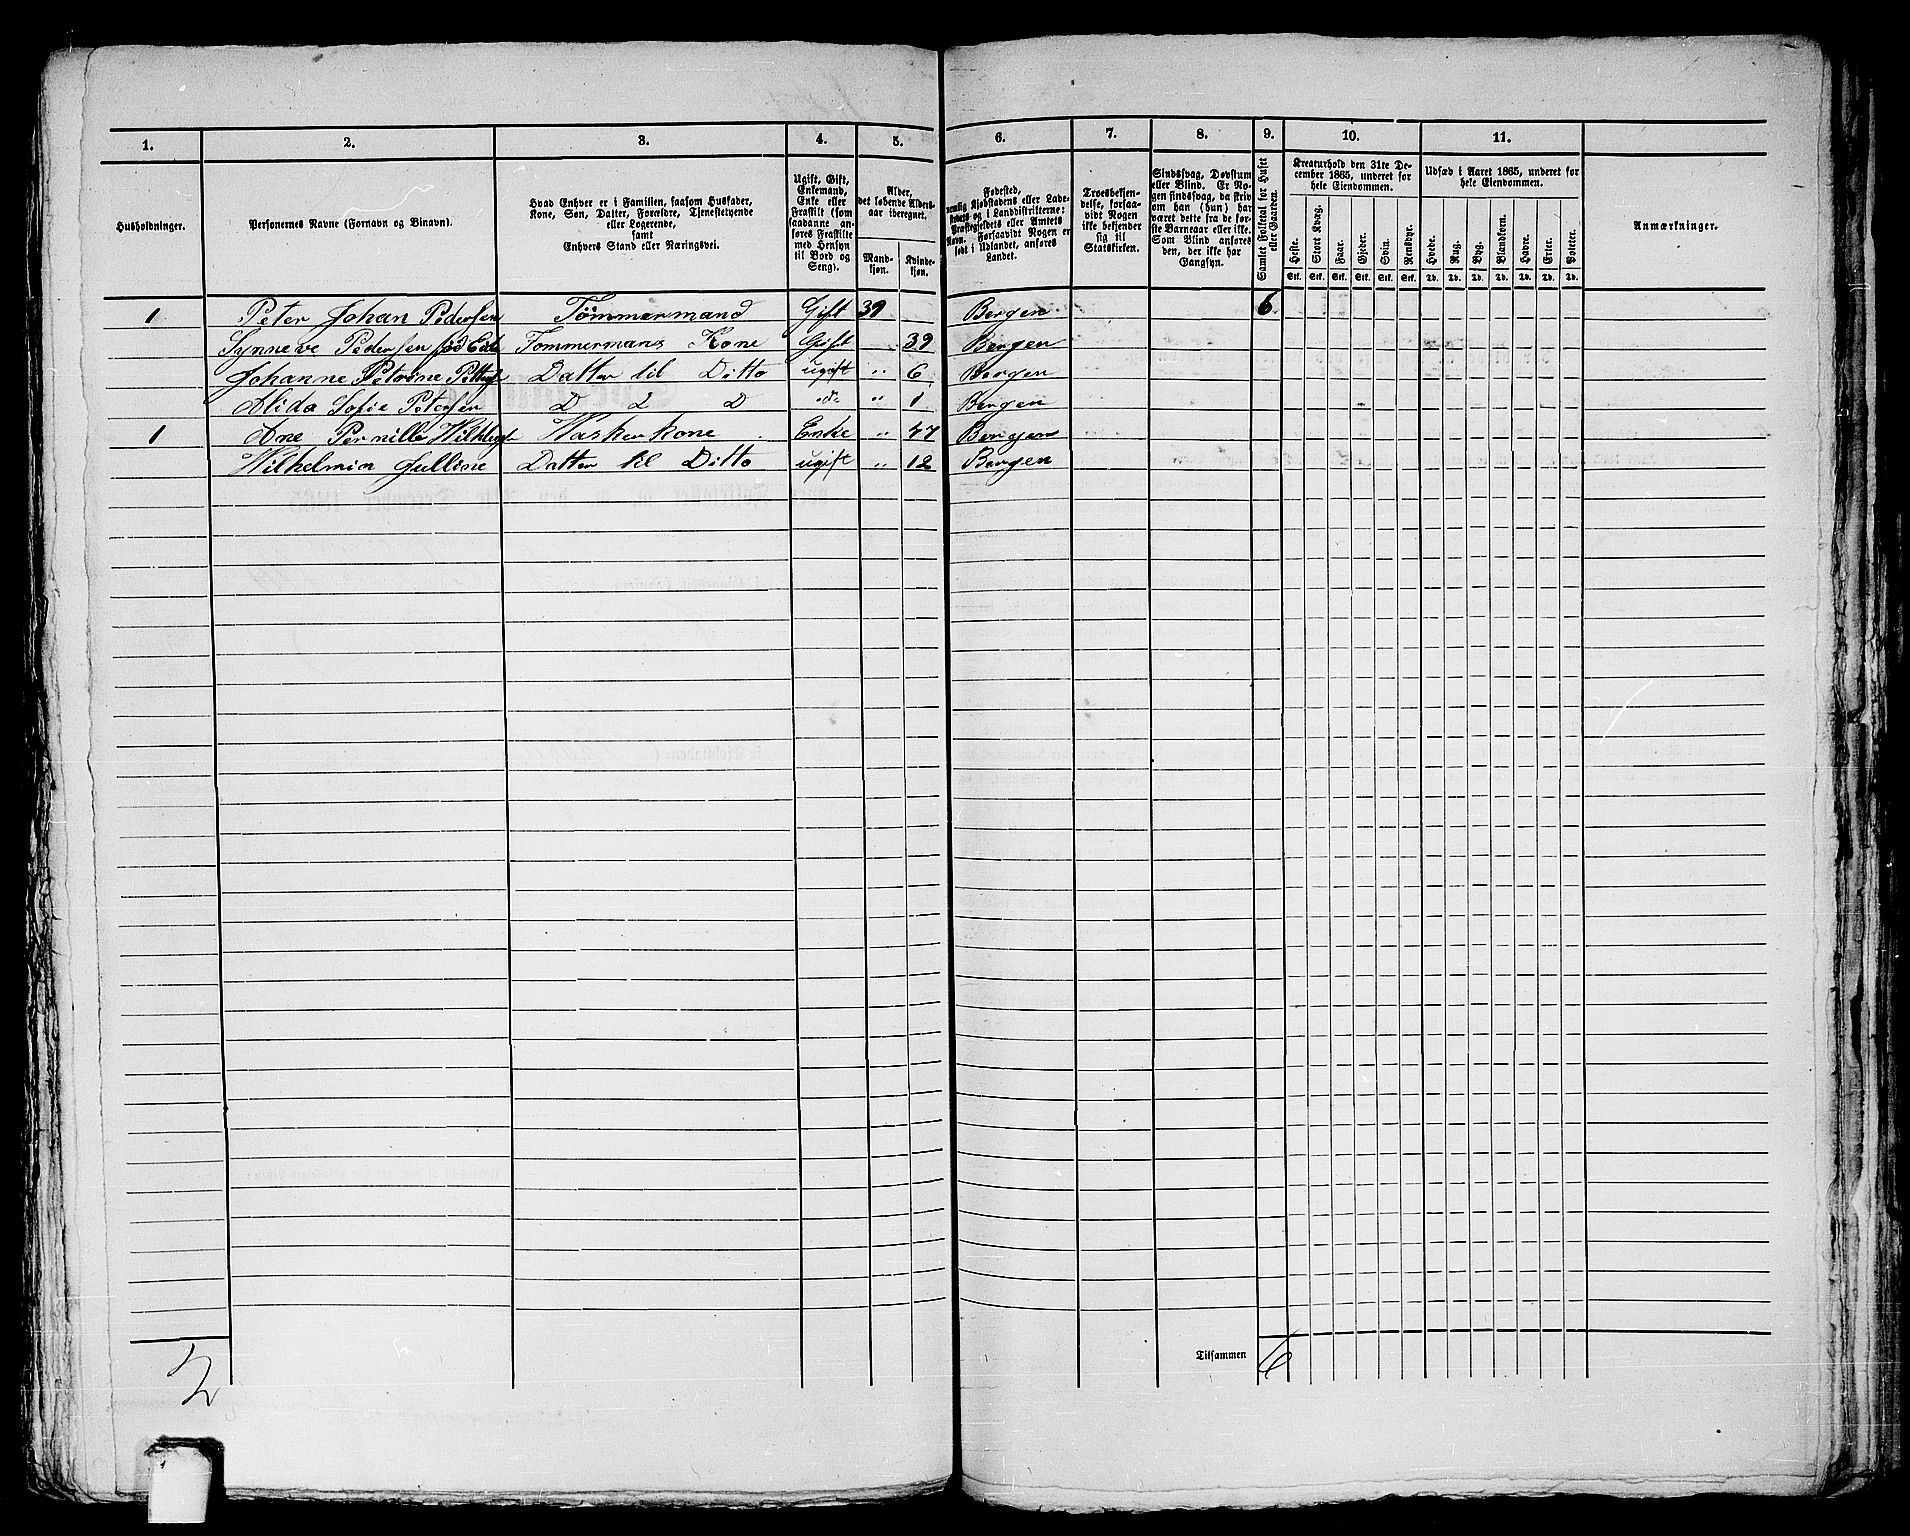 1. 2. 3. 4. 5. 6. 7. 8. 9. 10. 11.
Husholdninger.
Personernes Navne (Fornavn og Binavn).
Hvad Enhver er i Familien, saasom Husfader,
Kone, Søn, Datter, Forældre, Tjenestetyende
eller Logerende,
samt
Enhvers Stand eller Næringsvei.
Ugift, Gift,
Enkemand,
Enke eller
Fraskilt (som
saadanne an-
føres Fraskilte
med Hensyn
til Bord og
Seng).
Alder,
det løbende Alders-
aar iberegnet.
Mand-
kjøn.
Kvinde-
kjøn.
Fødested,
nemlig Kjøbstadens eller Lade-
stedets og i Landdistrikterne:
Præstegjeldets eller Amtets
Navn. Forsaavidt Nogen er
født i Udlandet, anføres
Landet.
Troesbekjen-
delse, forsaa-
vidt Nogen
ikke bekjender
sig til
Statskirken.
Sindssvag, Døvstum
eller Blind. Er No-
gen sindssvag, da skriv
om han (hun) har
været dette fra de før-
ste Barneaar eller ikke.
Som Blind anføres
den, der ikke har
Gangsyn.
Samlet Folketal for Huset
eller Gaarden.
Kreaturhold den 31te De-
cember 1865, underet for
hele Eiendommen.
Heste. Stort Kvæg. Faar. Gjeder. Svin. Rensdyr.
Stk. Stk. Stk. Stk. Stk. Stk.
Udsæd i Aaret 1865, underet for
hele Eiendommen.
Hvede. Rug. Byg. Blandkorn. Havre. Erter. Poteter.
Td. Td. Td. Td. Td. Td. Td.
Anmærkninger.
1 Peter Johan Pedersen Tømmermand Gift 39 Bergen 6
Synneve Pedersen fød Tommermans Kone Gift 39 Bergen
Johanne Petrine Datter til Ditto ugift " 6 Bergen
Alida Sofie Petersen D D "d" " 1 Bergen
1 Ane Pernille Vaskerkone Enke " 47 Bergen
Wilhelmin Julline Datter til Ditto ugift " 12 Bergen
Tilsammen 6
2